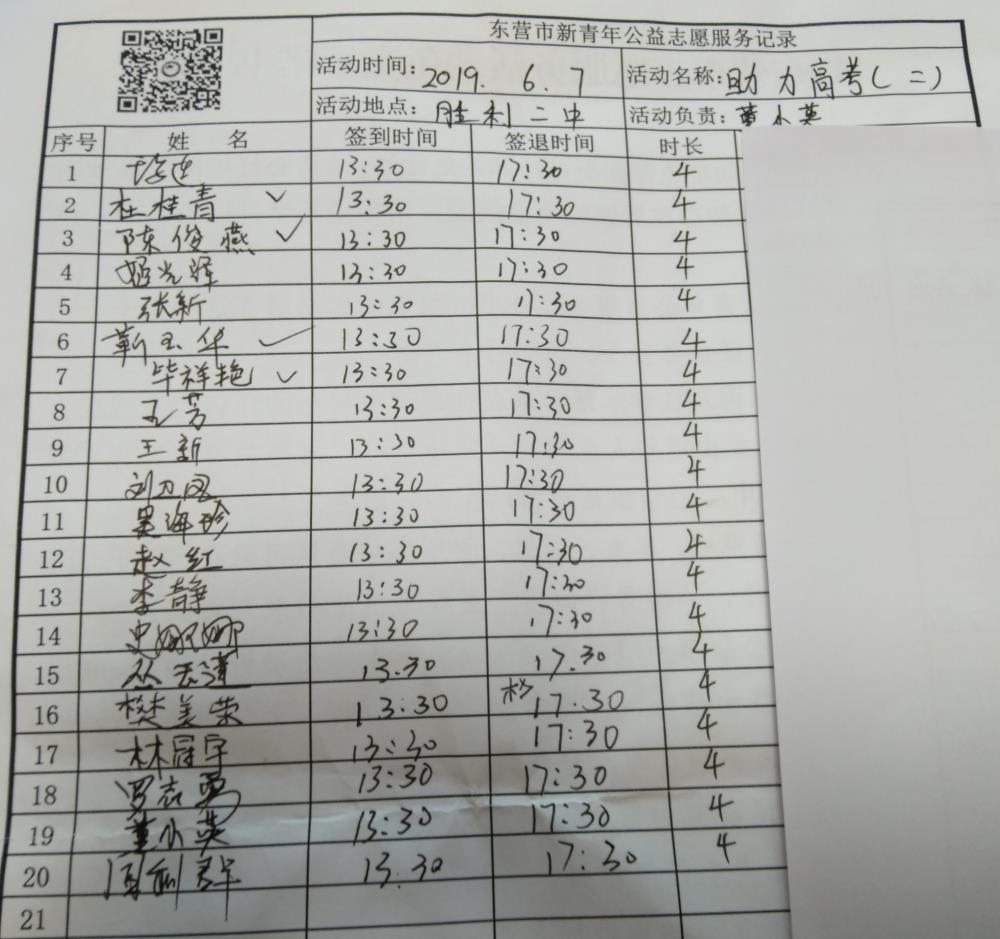 东营市新青年公益志愿服务记录
活动时间: 2019. 6. 7 活动名称: 助力高考(二)
活动地点: 胜利二中 活动负责: 董小英
序号 姓 名 签到时间 签退时间 时长
1 13:30 17:30 4
2 杜桂青 ✓ 13:30 17:30 4
3 陈俊燕 ✓ 13:30 17:30 4
4 13:30 17:30 4
5 张新 13:30 17:30 4
6 靳玉华 ✓ 13:30 17:30 4
7 毕祥艳 ✓ 13:30 17:30 4
8 王芳 13:30 17:30 4
9 王新 13:30 17:30 4
10 13:30 17:30 4
11 吴海珍 13:30 17:30 4
12 赵红 13:30 17:30 4
13 李静 13:30 17:30 4
14 史娜娜 13:30 17:30 4
15 13.30 17.30 4
16 樊美荣 13:30 17.30 4
17 林冠宇 13:30 17:30 4
18 罗志勇 13:30 17:30 4
19 董小英 13:30 17:30 4
20 周利群 13.30 17:30 4
21